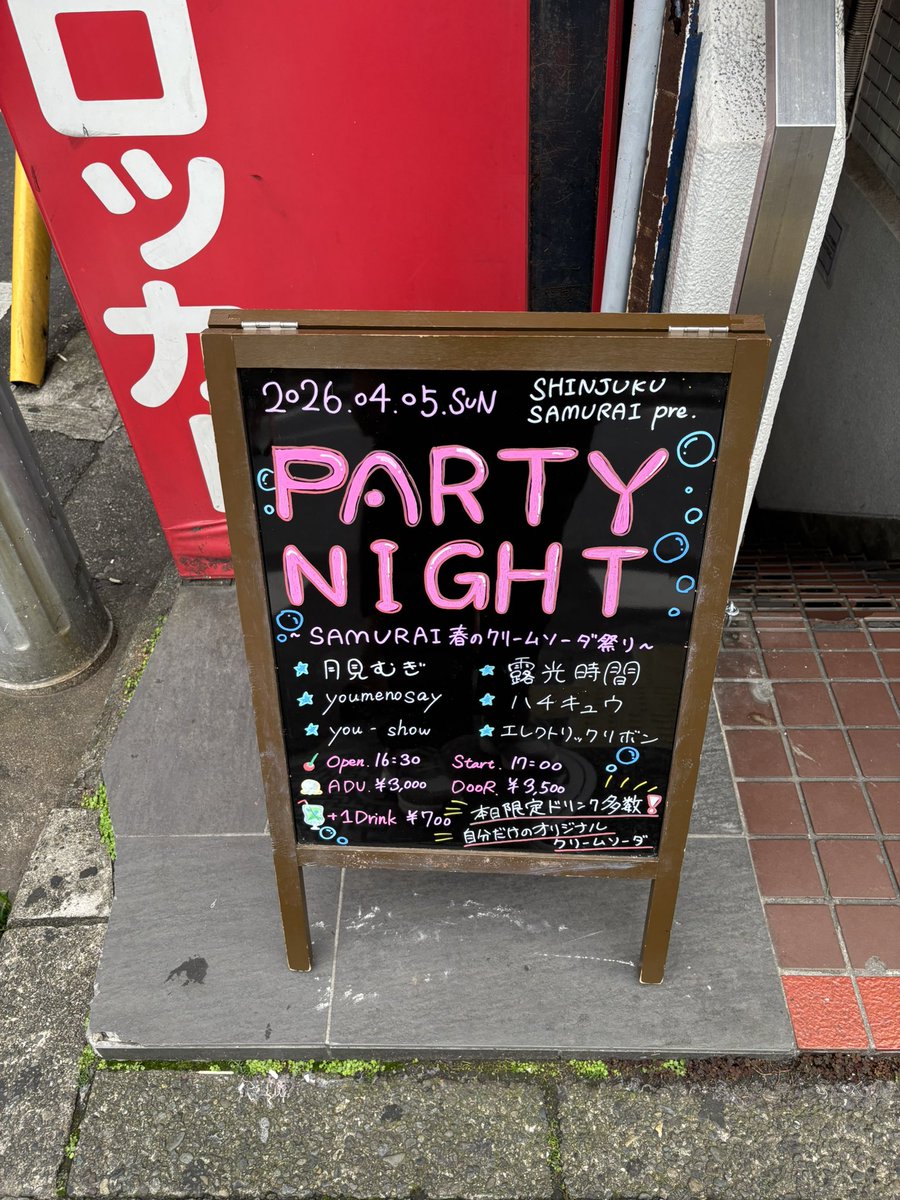 ロッカー
2026.04.05.SUN
SHINJUKU
SAMURAI pre.
PARTY
NIGHT
~SAMURAI 春のクリームソーダ祭り~
月見むぎ
露光時間
youmenosay
ハチキュウ
you-show
エレクトリックリボン
Open. 16:30 Start. 17:00
ADV. ¥3,000 DooR. ¥3,500
+1Drink ¥700
本日限定ドリンク多数!
自分だけのオリジナル
クリームソーダ